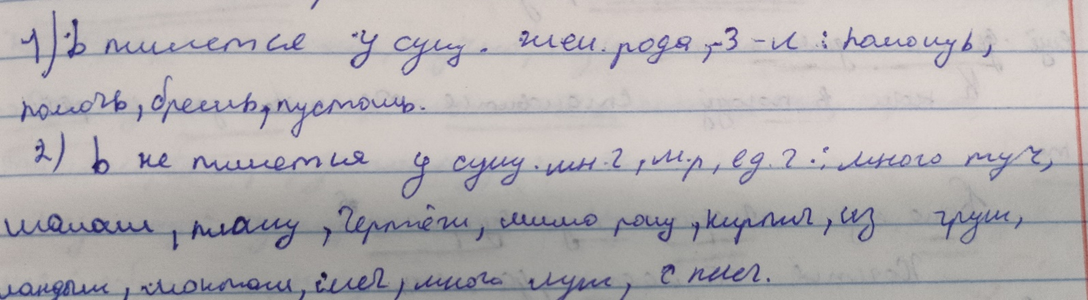 1) ь пишется у сущ. жен. рода, 3-л : помощь,
помочь, брешь, пустошь.
2) ь не пишется у сущ. мн.ч, м.р, ед.ч : много туч,
шалаш, плащ, чертёж, мимо рощ, кирпич, из груш,
ландыш, монтаж, меч, много луж, с плеч.